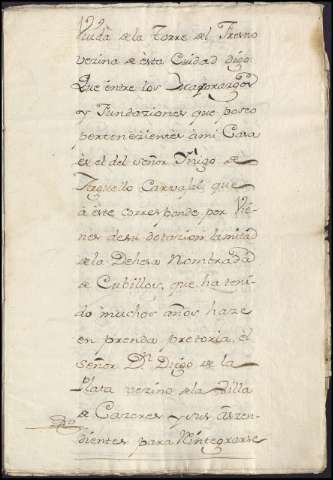 Viuda de la Torre del Fresno
vezina de esta Ciudad digo
Que entre los Mayorazgos
y Fundaziones que poseo
pertenezientes a mi Casa
es el del señor Yñigo de
Carvajal, que
a este corresponde por Vie-
nes de su dotazion la mitad
de la Dehesa Nombrada
de Cubillos, que ha teni-
do muchos años haze
en prenda pretoria, el
señor Dn. Diego de la
Plata vezino de la Villa
de Cazeres y sus aszen-
dientes para Rintegrarse